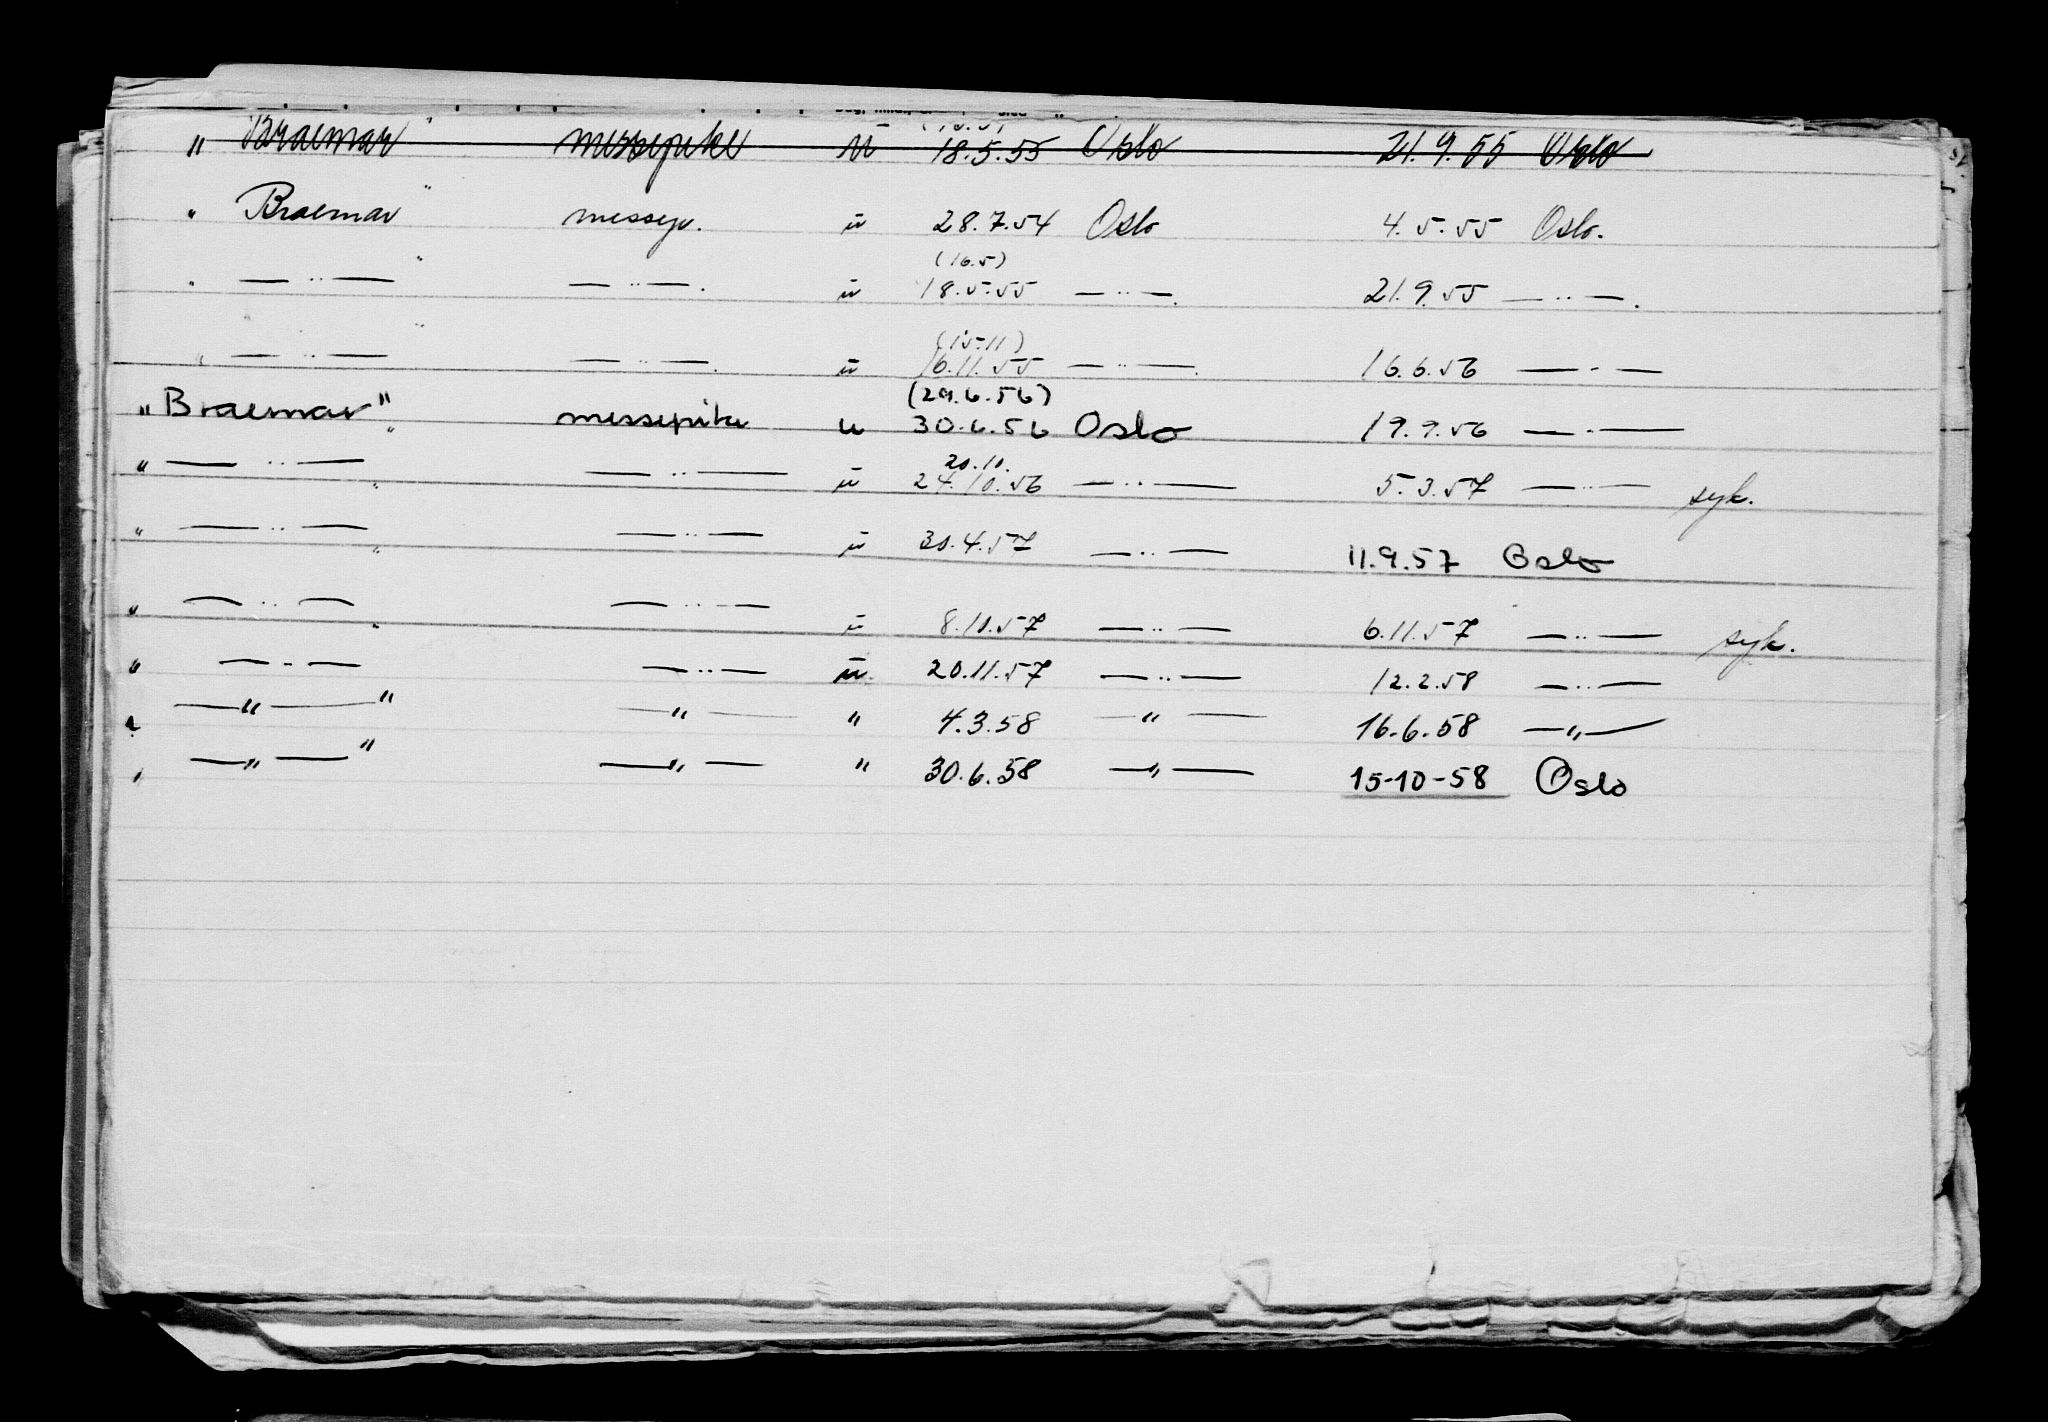 " Braemar" messepike ū 18.5.55 Oslo 21.9.55 Oslo
" Braemar" messep. ū 28.7.54 Oslo 4.5.55 Oslo.
(16.5)
" — .. — " — .. —. ū 18.5.55 — .. —. 21.9.55 — .. —.
(15-11)
" — .. — " — .. —. ū 16.11.55 — .. —. 16.6.56 — - —
(29.6.56)
"Braemar" messepike u 30.6.56 Oslo 19.9.56 — - —
20.10.
" — .. — " — .. — ū 24.10.56 — .. — 5.3.57 — .. — syk.
" — .. — " — .. — ū 30.4.57 — .. — 11.9.57 Oslo
" — .. — " — .. — ū 8.10.57 — .. — 6.11.57 — .. — syk.
" — - — — .. — ū 20.11.57 — .. — 12.2.58 — .. —
" — " — " — " — " 4.3.58 — " — 16.6.58 — " —
" — " — " — " — " 30.6.58 — " — 15-10-58 Oslo